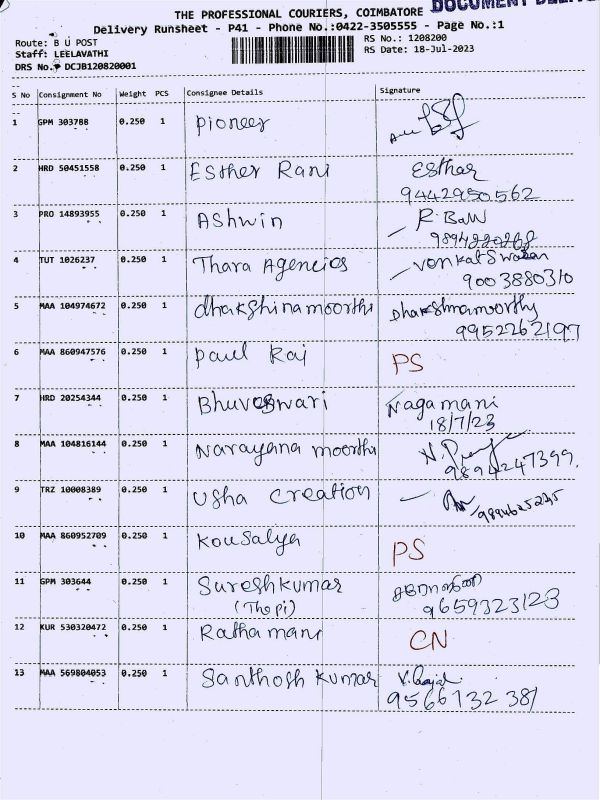 DOCUMENT
THE PROFESSIONAL COURIERS, COIMBATORE
Delivery Runsheet - P41 - Phone No.:0422-3505555 - Page No.:1
Route: B U POST
RS No.: 1208200
Staff: LEELAVATHI
RS Date: 18-Jul-2023
DRS No. DCJB120820001
S No Consignment No Weight PCS Consignee Details Signature
1 GPM 303788 0.250 1 Pioneer
2 HRD 50451558 0.250 1 Esther Rani Esther
9442950562
3 PRO 14893955 0.250 1 Ashwin R.
4 TUT 1026237 0.250 1 Thara Agencies
9003880310
5 MAA 104974672 0.250 1 dhakshina moorthi Dhakshnamoorthy
9952262197
6 MAA 860947576 0.250 1 Paul Raj PS
7 HRD 20254344 0.250 1 Bhuveswari Nagamani
18/7/23
8 MAA 104816144 0.250 1 Narayana moorthi N.
9894247399.
9 TRZ 10008389 0.250 1 Usha Creation
10 MAA 860952709 0.250 1 Kousalya PS
11 GPM 303644 0.250 1 Sureshkumar
(The pi) 9659323123
12 KUR 530320472 0.250 1 Rathamani CN
13 MAA 569804053 0.250 1 Santhosh Kumar
9566132381